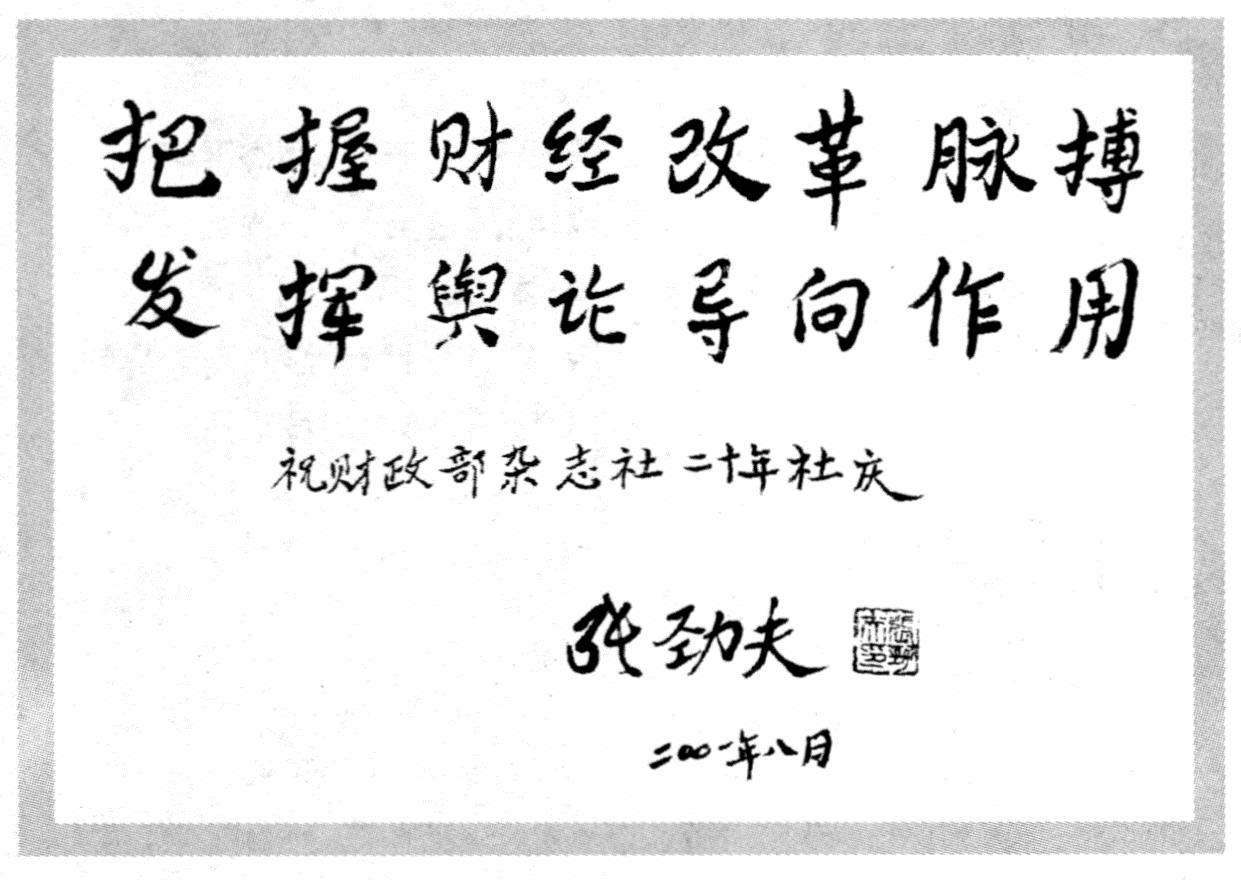 把握财经改革脉搏
发挥舆论导向作用
祝财政部杂志社二十年社庆
张劲夫
张劲夫印
二〇〇一年八月